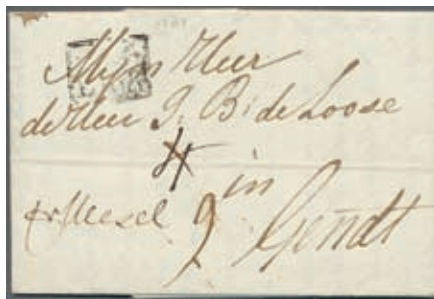 Mijn Heer
de Heer J. B: de Loose
4
in
9
Gendt